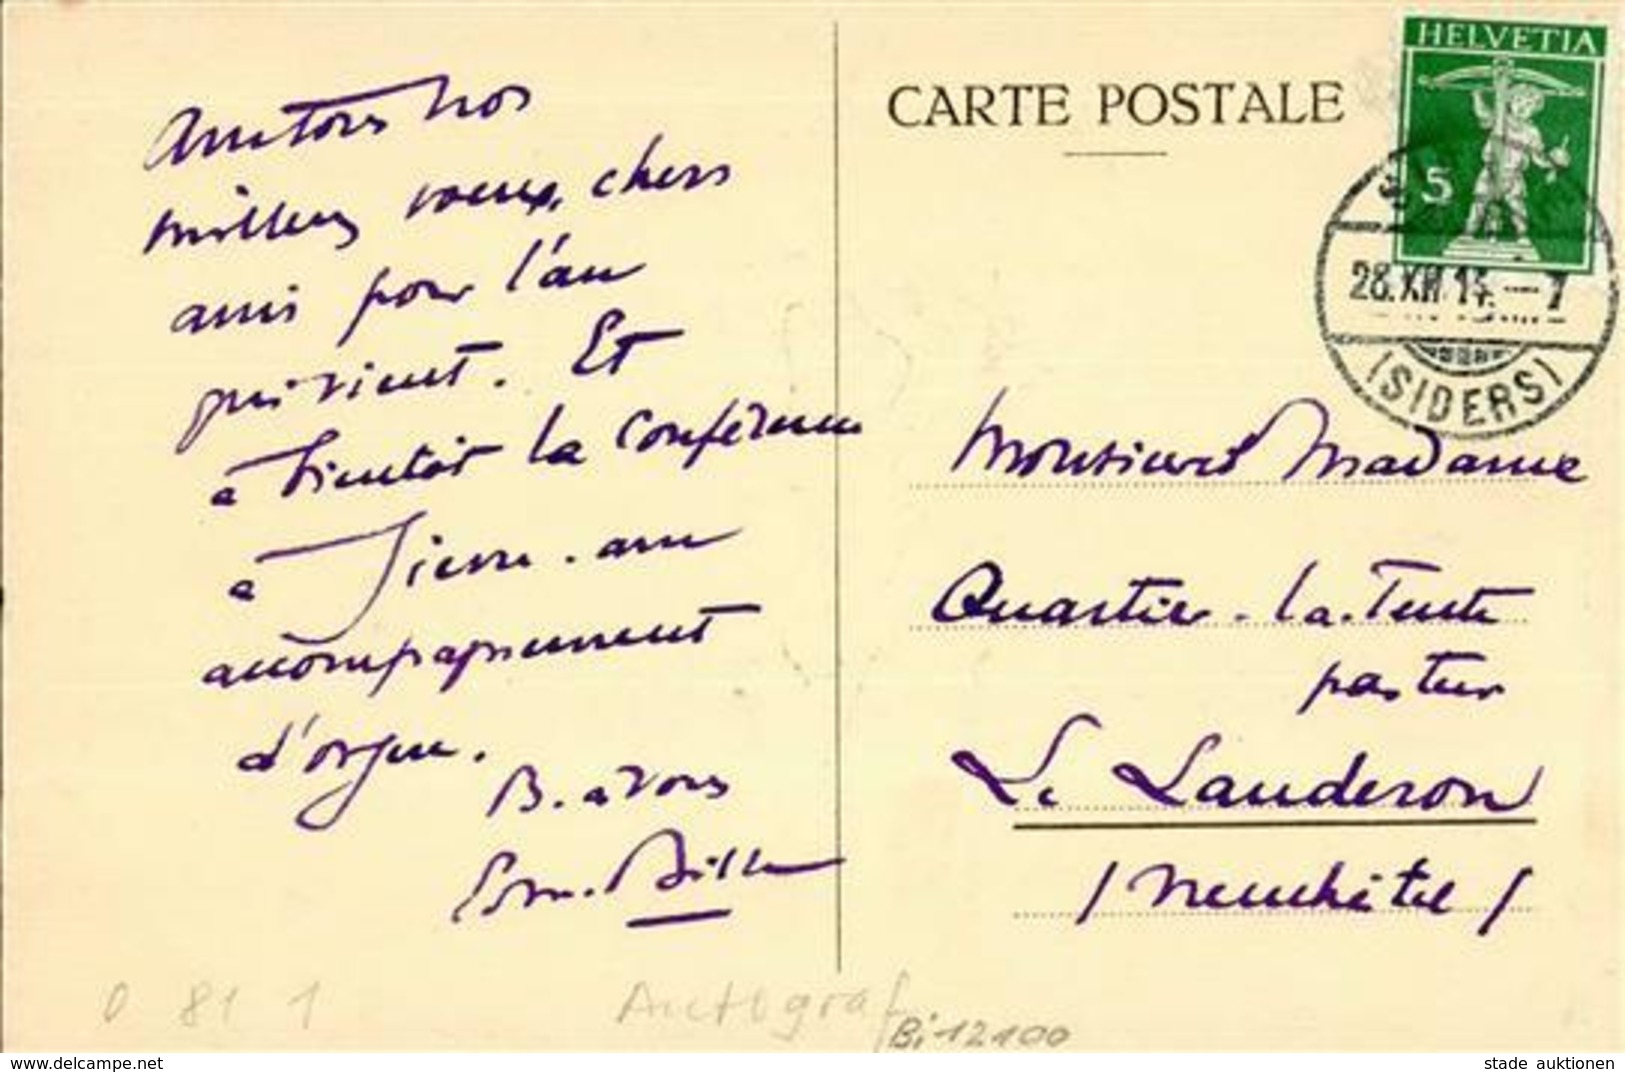 Avec tous nos
meilleurs voeux, chers
amis pour l'an
qui vient. Et
à bientôt la conférence
à Sierre. avec
accompagnement
d'orgue.
B. à vous
Edm. Bille
CARTE POSTALE
HELVETIA
5
28.XII.14.–7
(SIDERS)
Monsieur et Madame
Quartier-la-Tente
pasteur
Le Landeron
(Neuchâtel)
0 81 1
Autograf
Bi 12100
www.delcampe.net
stade auktionen